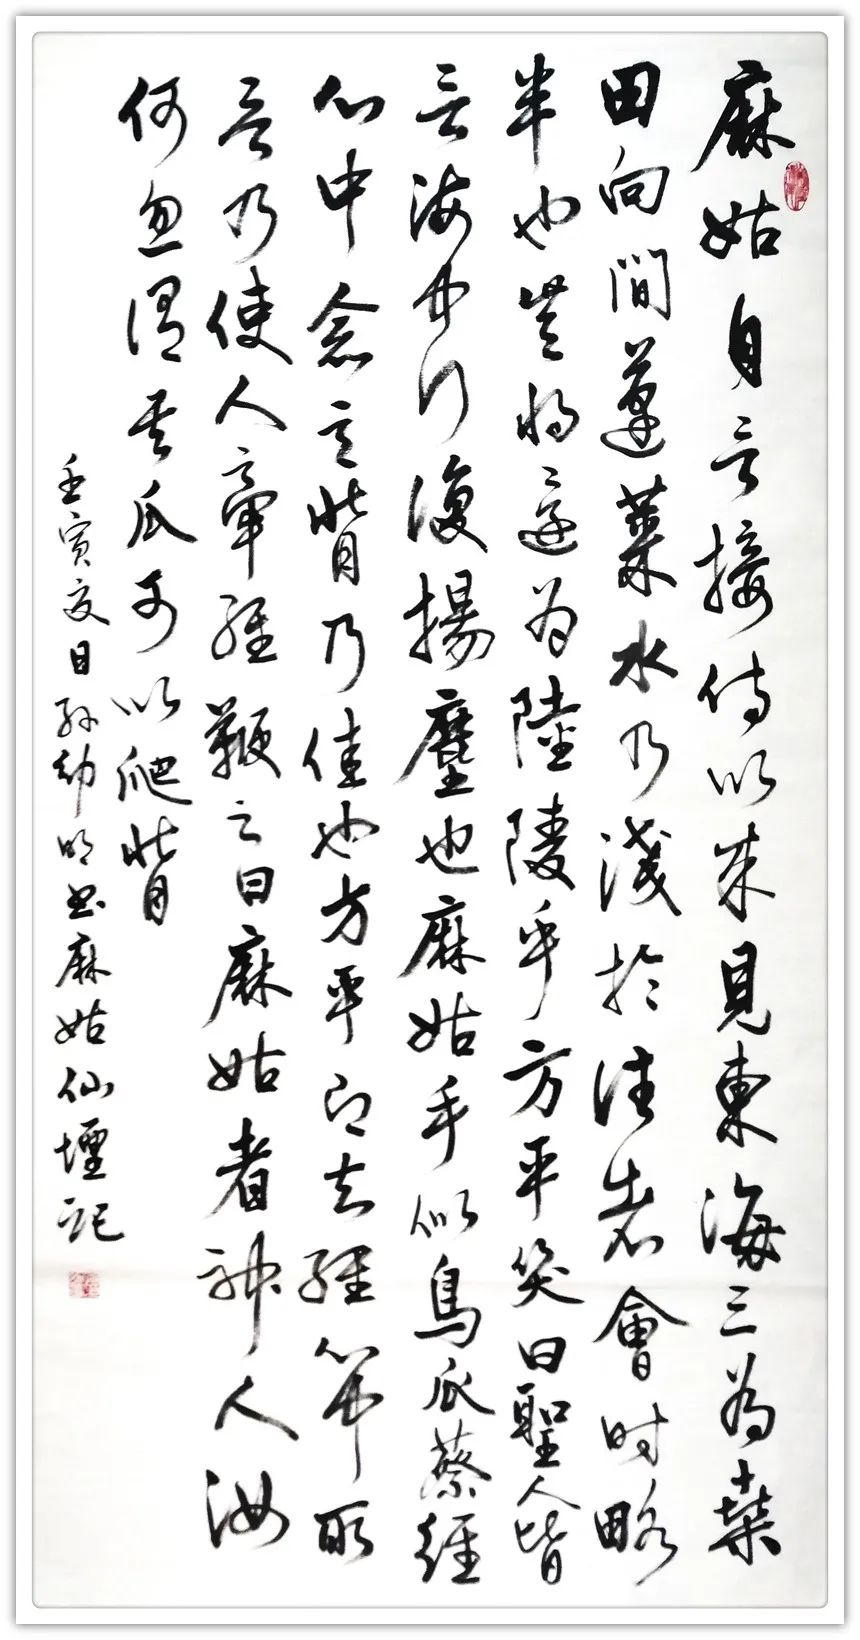 麻姑自言接侍以来見東海三為桑
田向間蓬莱水乃淺於往者會時略
半也豈將還為陸陵乎方平笑曰聖人皆
言海中行復揚塵也麻姑手似鳥爪蔡經
心中念言背痒乃佳也方平即知經心中所
言乃使人牽經鞭之曰麻姑者神人汝
何忽謂其爪可以爬背
壬寅夏日孫幼明书麻姑仙壇記